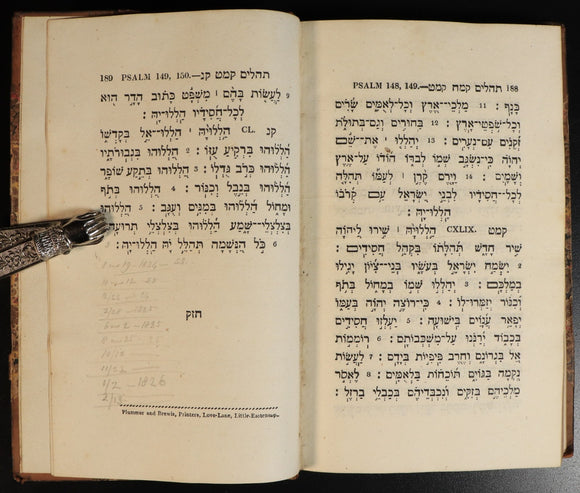 188 תהלים קמח קמט.—PSALM 148, 149
כָּנָף: 11 מַלְכֵי־אֶרֶץ וְכָל־לְאֻמִּים שָׂרִים
וְכָל־שֹׁפְטֵי־אָרֶץ: 12 בַּחוּרִים וְגַם־בְּתוּלוֹת
זְקֵנִים עִם־נְעָרִים: 13 יְהַלְלוּ ׀ אֶת־שֵׁם
יְהוָה כִּי־נִשְׂגָּב שְׁמוֹ לְבַדּוֹ הוֹדוֹ עַל־אֶרֶץ
וְשָׁמָיִם: 14 וַיָּרֶם קֶרֶן ׀ לְעַמּוֹ תְּהִלָּה
לְכָל־חֲסִידָיו לִבְנֵי יִשְׂרָאֵל עַם קְרֹבוֹ
הַלְלוּ־יָהּ:
קמט CXLIX. הַלְלוּיָהּ ׀ שִׁירוּ לַיהוָה
שִׁיר חָדָשׁ תְּהִלָּתוֹ בִּקְהַל חֲסִידִים:
2 יִשְׂמַח יִשְׂרָאֵל בְּעֹשָׂיו בְּנֵי־צִיּוֹן יָגִילוּ
בְמַלְכָּם: 3 יְהַלְלוּ שְׁמוֹ בְמָחוֹל בְּתֹף
וְכִנּוֹר יְזַמְּרוּ־לוֹ: 4 כִּי־רוֹצֶה יְהוָה בְּעַמּוֹ
יְפָאֵר עֲנָוִים בִּישׁוּעָה: 5 יַעְלְזוּ חֲסִידִים
בְּכָבוֹד יְרַנְּנוּ עַל־מִשְׁכְּבוֹתָם: 6 רוֹמְמוֹת
אֵל בִּגְרוֹנָם וְחֶרֶב פִּיפִיּוֹת בְּיָדָם: 7 לַעֲשׂוֹת
נְקָמָה בַּגּוֹיִם תּוֹכֵחוֹת בַּלְאֻמִּים: 8 לֶאְסֹר
מַלְכֵיהֶם בְּזִקִּים וְנִכְבְּדֵיהֶם בְּכַבְלֵי בַרְזֶל:
תהלים קמט קנ.—PSALM 149, 150 189
9 לַעֲשׂוֹת בָּהֶם ׀ מִשְׁפָּט כָּתוּב הָדָר הוּא
לְכָל־חֲסִידָיו הַלְלוּ־יָהּ:
קנ CL. הַלְלוּיָהּ ׀ הַלְלוּ־אֵל בְּקָדְשׁוֹ
הַלְלוּהוּ בִּרְקִיעַ עֻזּוֹ: 2 הַלְלוּהוּ בִגְבוּרֹתָיו
הַלְלוּהוּ כְּרֹב גֻּדְלוֹ: 3 הַלְלוּהוּ בְּתֵקַע שׁוֹפָר
הַלְלוּהוּ בְּנֵבֶל וְכִנּוֹר: 4 הַלְלוּהוּ בְּתֹף
וּמָחוֹל הַלְלוּהוּ בְּמִנִּים וְעֻגָב: 5 הַלְלוּהוּ
בְּצִלְצְלֵי־שָׁמַע הַלְלוּהוּ בְּצִלְצְלֵי תְרוּעָה:
6 כֹּל הַנְּשָׁמָה תְּהַלֵּל יָהּ הַלְלוּ־יָהּ:
חזק
1/2 – 1826
Plummer and Brewis, Printers, Love-Lane, Little-Eastcheap.